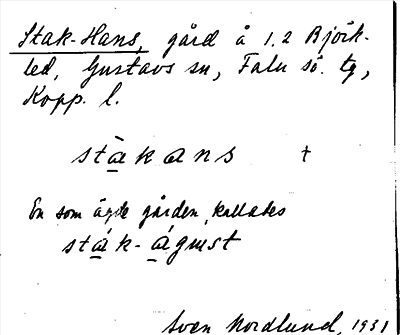 Stak-Hans, gård å 1.2 Björk-
led, Gustavs sn, Falu sö. tg,
Kopp. l.
stàkans †
En som ägde gården kallades
sták-águst
Sven Nordlund, 1931